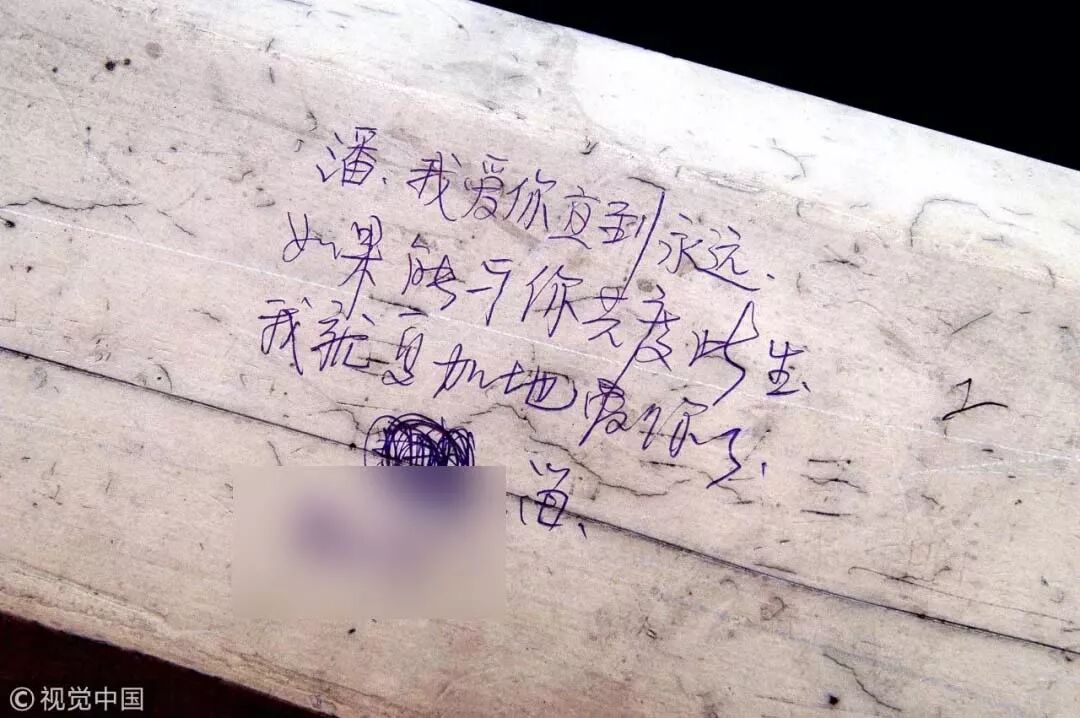 潘、我爱你直到永远、
如果能于你共度此生、
我就更加地爱你了、
海、
© 视觉中国